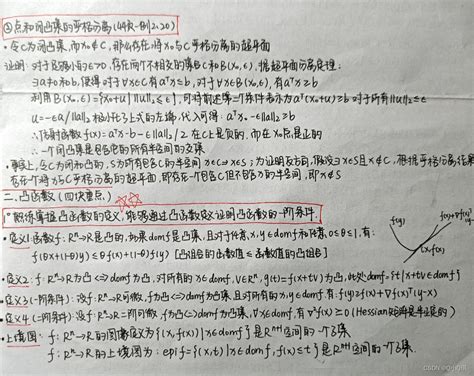 ③点和闭凸集的严格分离(44页-例2.20)
·令C为闭凸集,而x₀∉C,那么存在将x₀与C严格分离的超平面
证明:对于足够小的ε>0,存在两个不相交的集C和B(x₀,ε),据超平面分离定理:
∃a≠0和b,使得对于∀x∈C有aᵀx≤b,对于∀x∈B(x₀,ε),有aᵀx≥b
利用B(x₀,ε)={x₀+u | ||u||₂≤ε},可将前述第二个条件表示为aᵀ(x₀+u)≥b 对于所有||u||₂≤ε
u=-εa/||a||₂ 极小化了上式的左端,代入可得:aᵀx₀-ε||a||₂≥b
∴仿射函数f(x)=aᵀx-b-ε||a||₂/2 在C上是负的,而在x₀点是正的
∴一个闭凸集是包含它的所有半空间的交集
·事实上,令C为闭和凸的,S为所有包含C的半空间,x∈C⇒x∈S;为证明反方向,假设∃x∈S且x∉C,根据严格分离结果
存在一个将x与C严格分离的超平面,即存在一个包含C但不包含x的半空间,即x∉S
二.凸函数(四块重点)
°熟练掌握凸函数的定义,能够通过凸函数定义证明凸函数的一阶条件.
·定义1:函数f:Rⁿ→R是凸的,如果domf是凸集,且对于任意x,y∈domf和任意0≤θ≤1,有:
f(θx+(1-θ)y)≤θf(x)+(1-θ)f(y) [凸组合的函数值≤函数值的凸组合]
f(y)
f(x)+∇f(x)ᵀ(y-x)
(x,f(x))
·定义2:f:Rⁿ→R为凸⇔domf为凸,对所有的x∈domf,v∈Rⁿ,g(t)=f(x+tv)为凸,t处domg={t|x+tv∈domf}
·定义3(一阶条件):设f:Rⁿ→R可微,f为凸⇔domf为凸集,且对所有的x,y∈domf,有:f(y)≥f(x)+∇f(x)ᵀ(y-x)
·定义4(二阶条件):设f:Rⁿ→R二阶可微,f为凸⇔domf为凸集,∀x∈domf,有∇²f(x)≥0(Hessian矩阵是半正定的)
·上境图:f:Rⁿ→R的图像定义为{(x,f(x))|x∈domf}是Rⁿ⁺¹空间的一个子集
f:Rⁿ→R的上镜图为:epif={(x,t)|x∈domf,f(x)≤t}是Rⁿ⁺¹空间的一个子集.